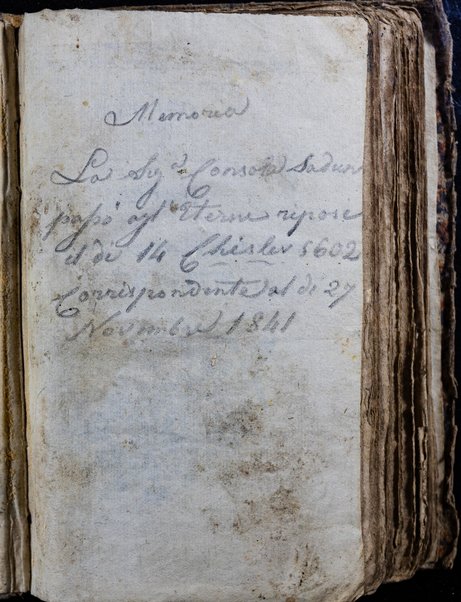 Memoria
La Sig.ra Consola Sadun
passò agl'Eterni riposi
il dì 14 Chislev 5602
Corrispondente al dì 27
Novembre 1841